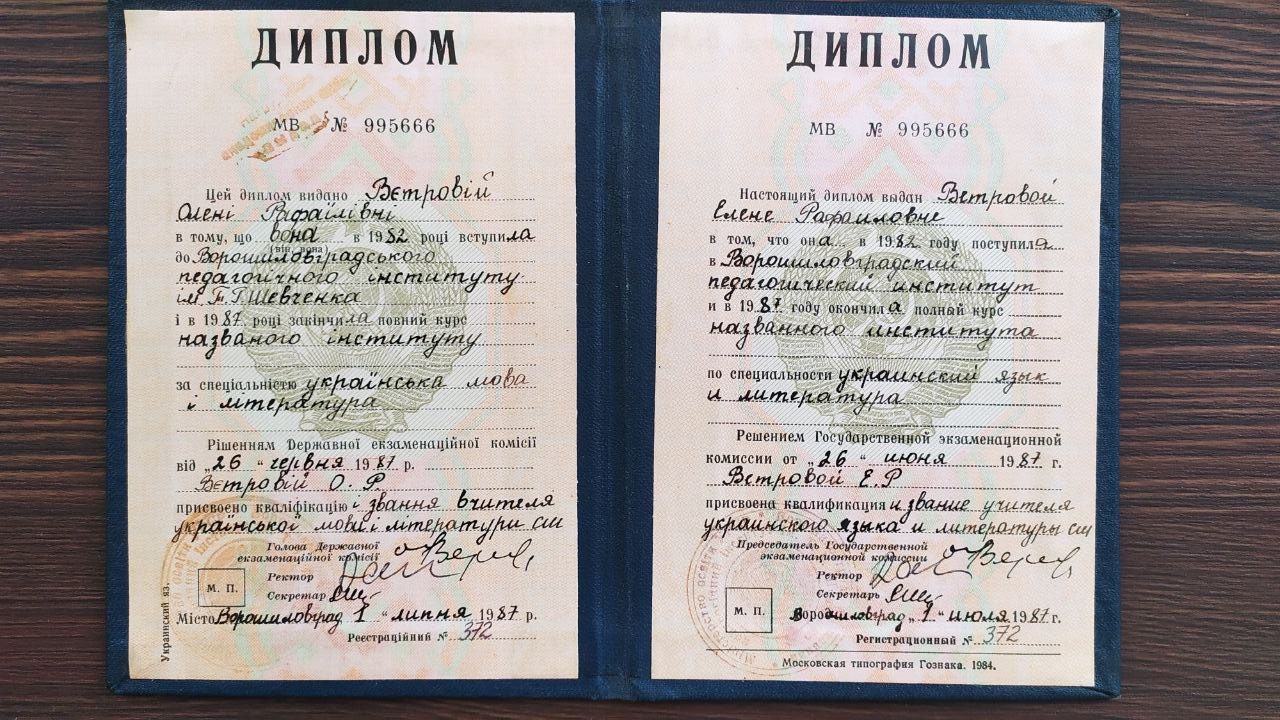 ДИПЛОМ
МВ № 995666
Цей диплом видано Вєтровій
Олені Рафаїлівні
в тому, що вона в 1982 році вступила
(він, вона)
до Ворошиловградського
педагогічного інституту
ім. Т.Г. Шевченка
і в 1987 році закінчила повний курс
названого інституту
за спеціальністю українська мова
і література
Рішенням Державної екзаменаційної комісії
від „26“ червня 1987 р.
Вєтровій О. Р.
присвоєно кваліфікацію і звання вчителя
української мови і літератури сш
Голова Державної
екзаменаційної комісії
Ректор
М. П.
Секретар
Місто Ворошиловград 1 “ липня 1987 р.
Реєстраційний № 372
Украинский яз.
ДИПЛОМ
МВ № 995666
Настоящий диплом выдан Ветровой
Елене Рафаиловне
в том, что она в 1982 году поступила
в Ворошиловградский
педагогический институт
и в 1987 году окончила полный курс
названного института
по специальности украинский язык
и литература
Решением Государственной экзаменационной
комиссии от „26“ июня 1987 г.
Ветровой Е. Р
присвоена квалификация и звание учителя
украинского языка и литературы сш
Председатель Государственной
экзаменационной комиссии
Ректор
М. П.
Секретарь
Ворошиловград „1“ июля 1987 г.
Регистрационный № 372
Московская типография Гознака. 1984.